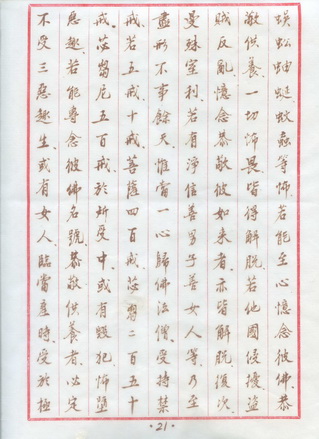 蜈蚣蚰蜒蚊蝱等怖若能至心憶念彼佛恭
敬供養一切怖畏皆得解脫若他國侵擾盜
賊反亂憶念恭敬彼如來者亦皆解脫復次
曼殊室利若有淨信善男子善女人等乃至
盡形不事餘天惟當一心歸佛法僧受持禁
戒若五戒十戒菩薩四百戒苾芻二百五十
戒苾芻尼五百戒於所受中或有毀犯怖墮
惡趣若能專念彼佛名號恭敬供養者必定
不受三惡趣生或有女人臨當產時受於極
·21·